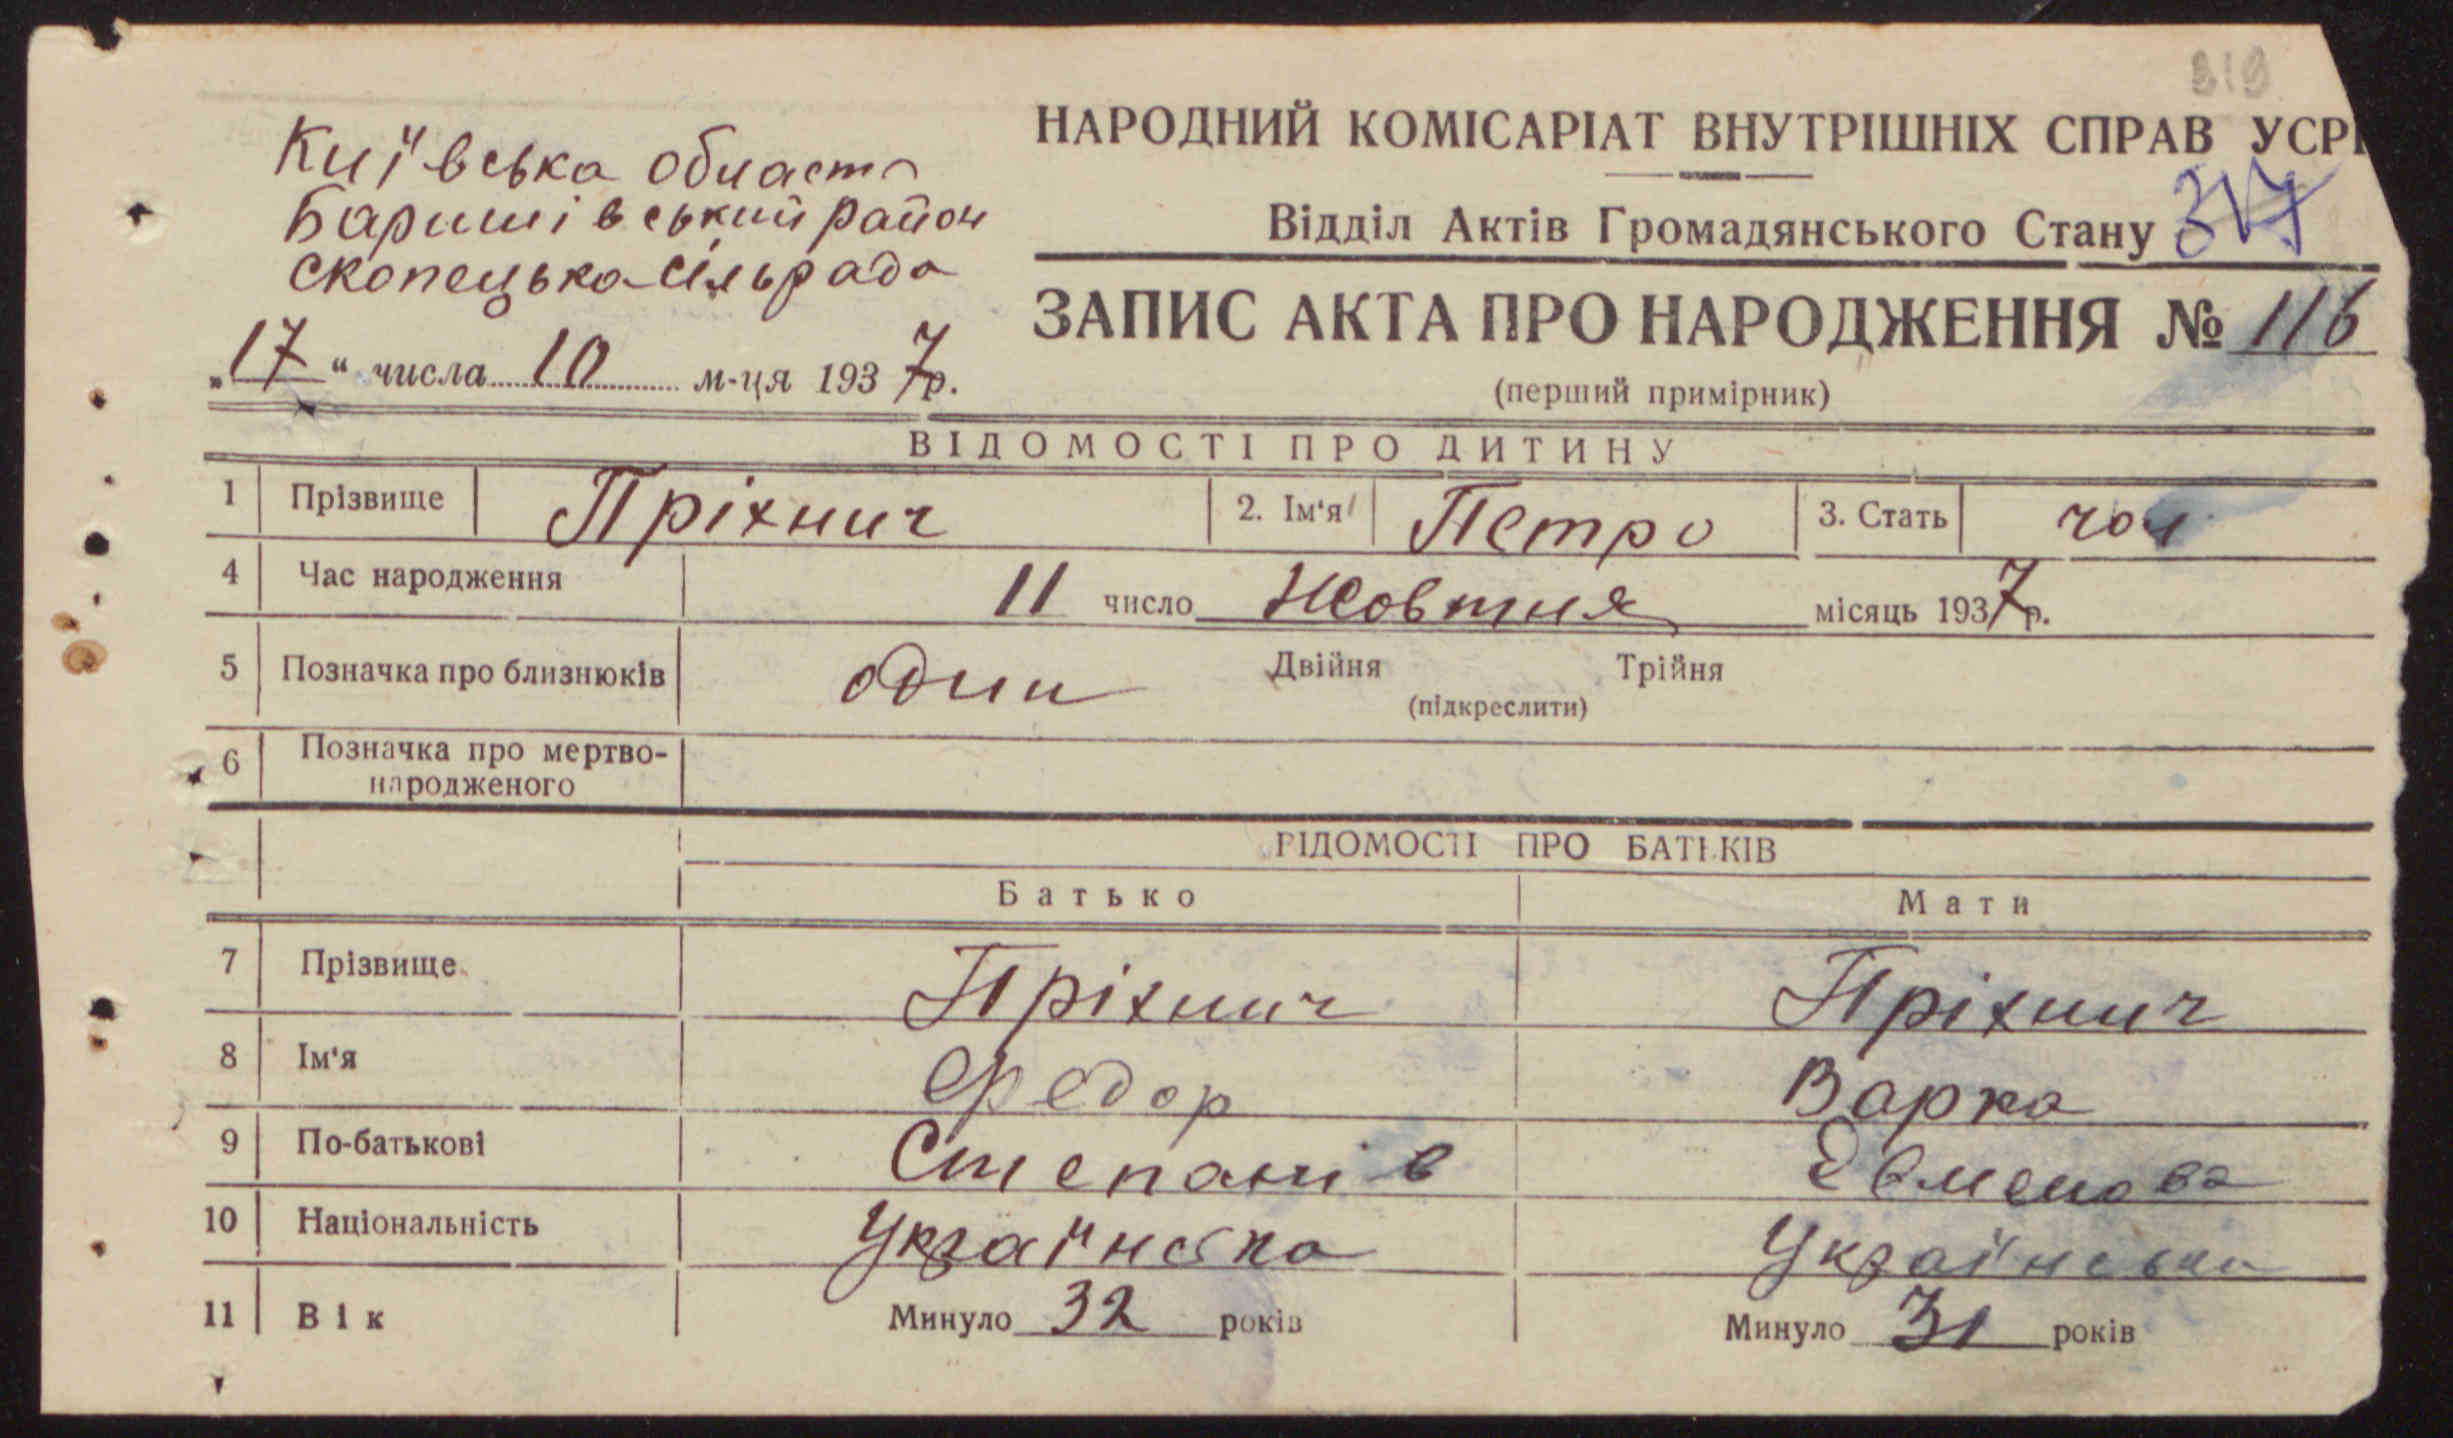 319
Київська область
Баришівський район
Скопецька сільрада
„17“ числа 10 м-ця 1937 р.
НАРОДНИЙ КОМІСАРІАТ ВНУТРІШНІХ СПРАВ УСРР
Відділ Актів Громадянського Стану 317
ЗАПИС АКТА ПРО НАРОДЖЕННЯ № 116
(перший примірник)
ВІДОМОСТІ ПРО ДИТИНУ
1 Прізвище Пріхнич 2. Ім'я Петро 3. Стать чол
4 Час народження 11 число Жовтня місяць 1937 р.
5 Позначка про близнюків один Двійня Трійня
(підкреслити)
6 Позначка про мертво-
народженого
ВІДОМОСТІ ПРО БАТЬКІВ
Батько Мати
7 Прізвище Пріхнич Пріхнич
8 Ім'я Федор Варка
9 По-батькові Степанів Євменова
10 Національність Українська Українська
11 Вік Минуло 32 років Минуло 31 років